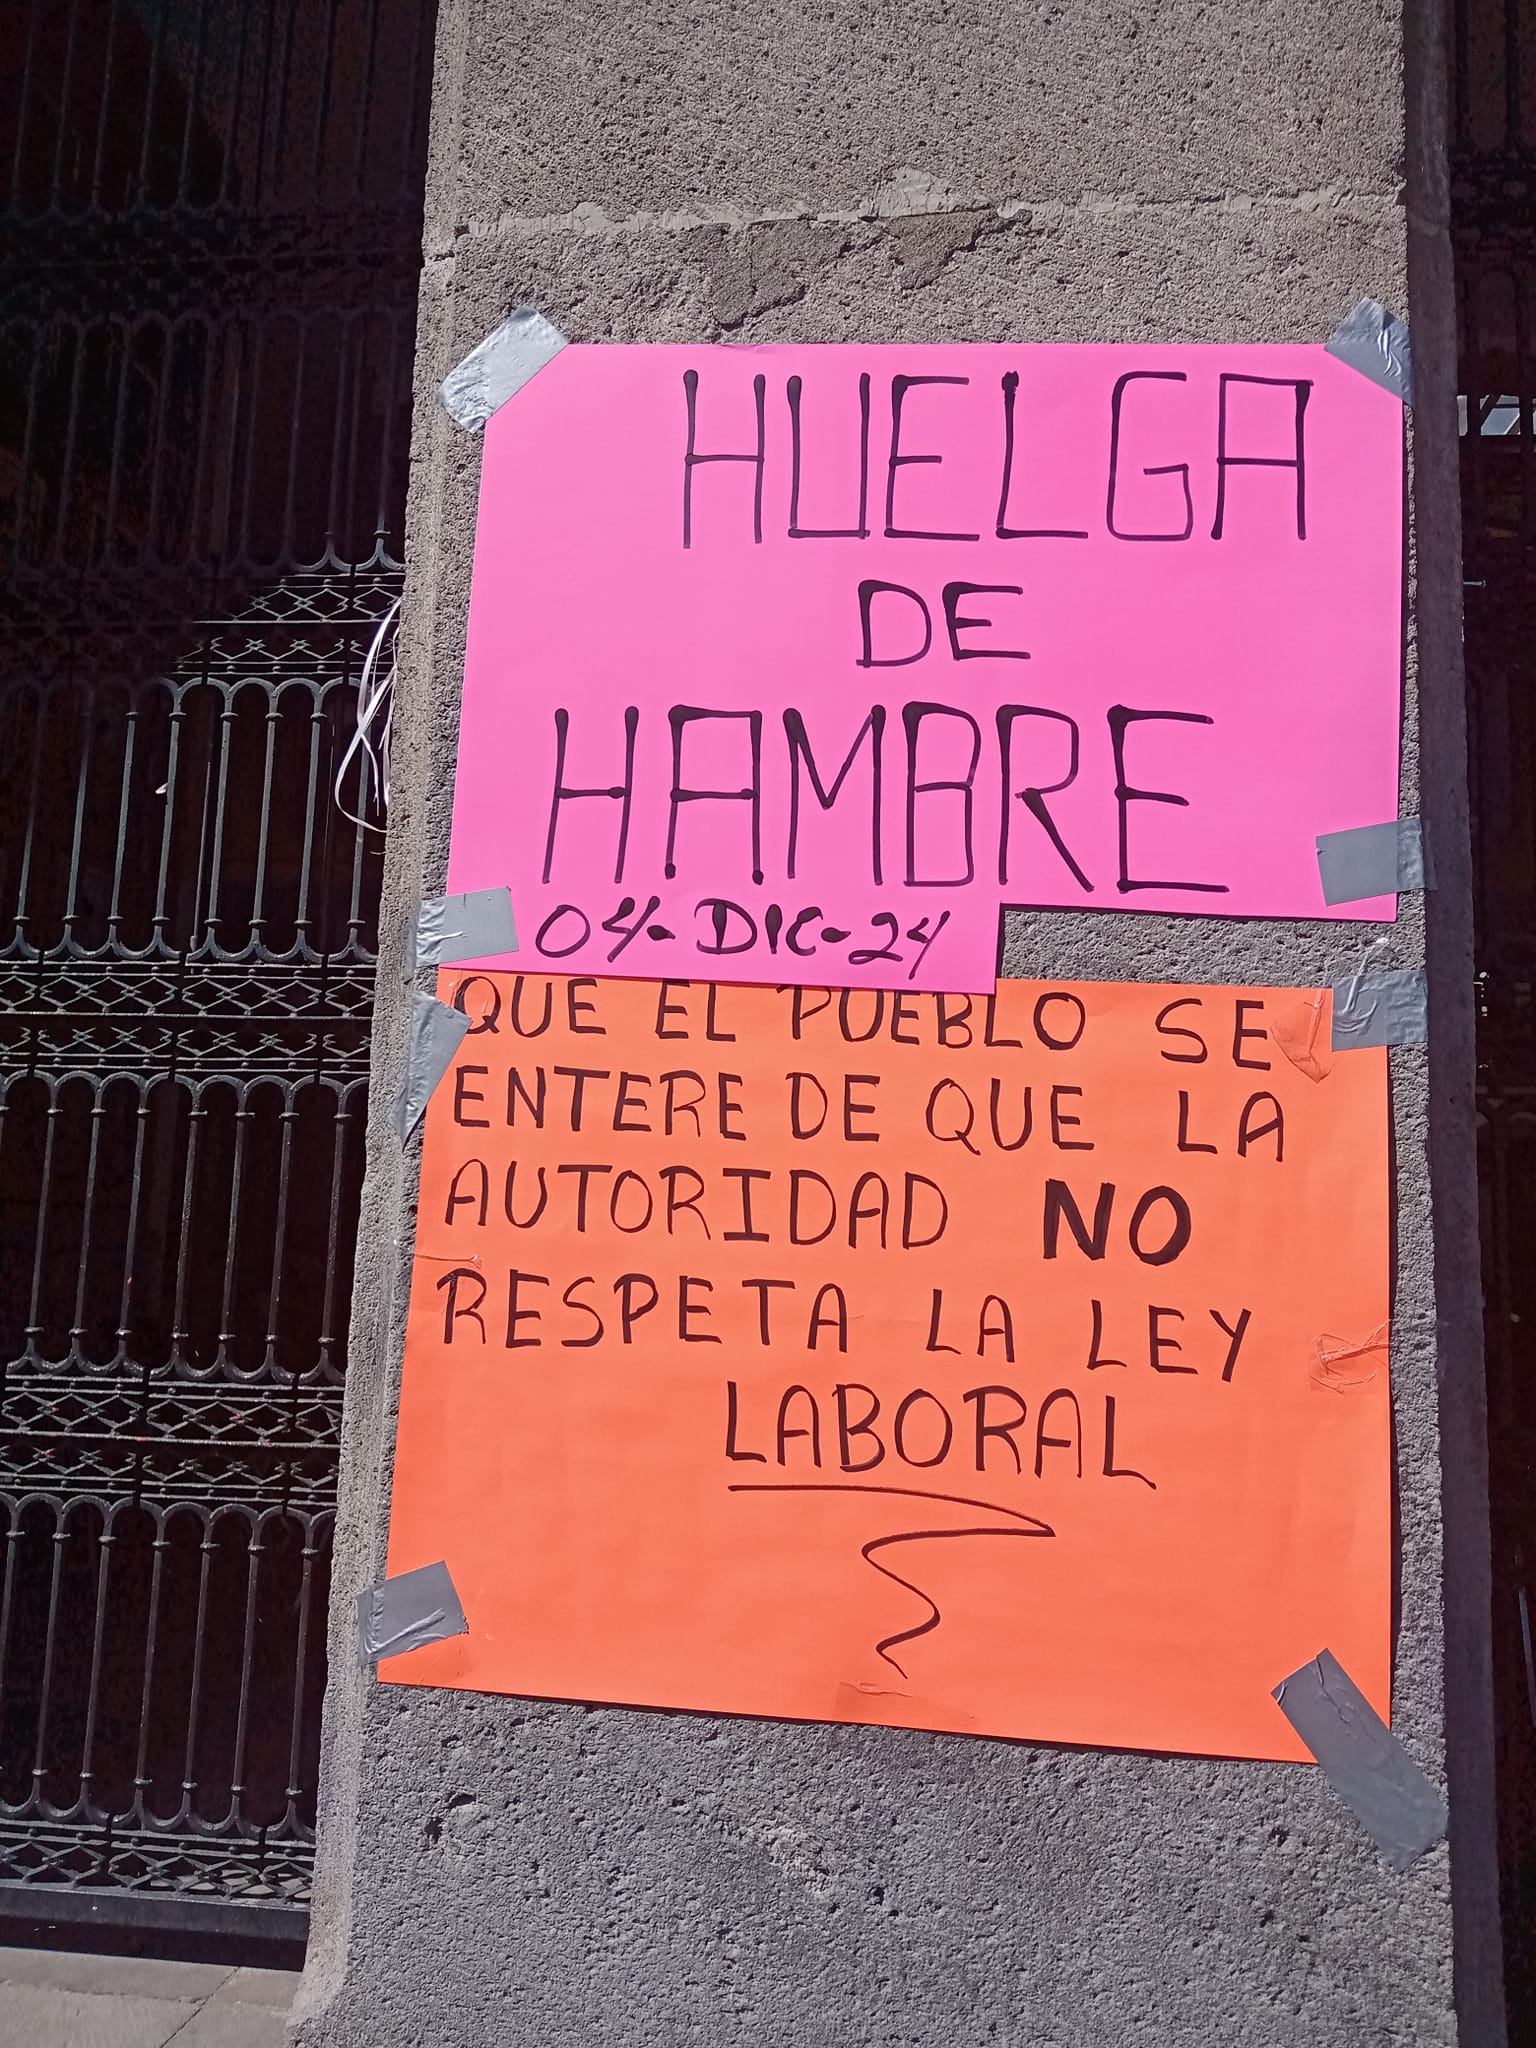 HUELGA
DE
HAMBRE
04-DIC-24
QUE EL PUEBLO SE
ENTERE DE QUE LA
AUTORIDAD NO
RESPETA LA LEY
LABORAL